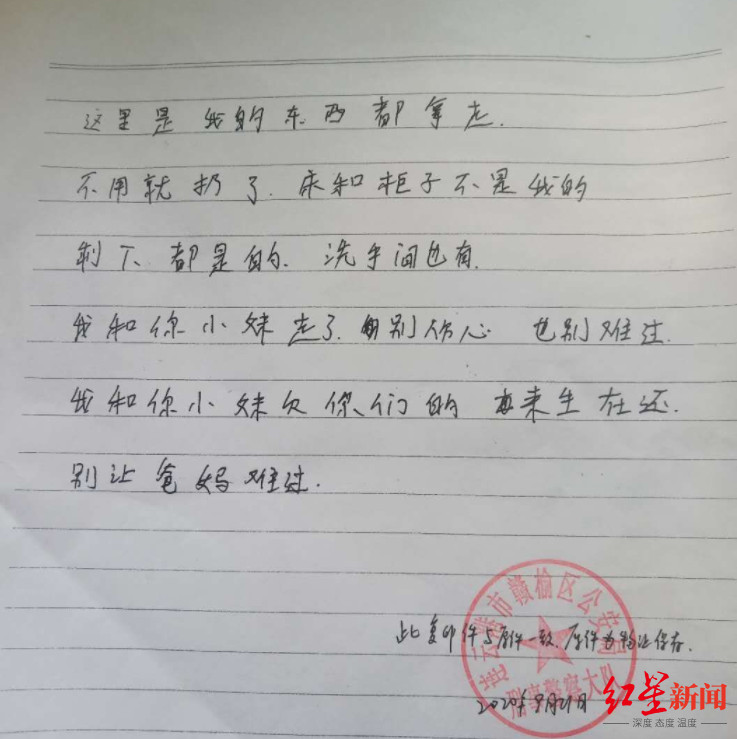 这里是我的东西都拿走.
不用就扔了.床和柜子不是我的
剩下都是的.洗手间也有.
我和你小妹走了.别伤心 也别难过.
我和你小妹欠你们的 来生在还.
别让爸妈难过.
此复印件与原件一致.原件为物证保存.
连云港市赣榆区公安局
刑事警察大队
2020年9月21日
红星新闻
深度 态度 温度